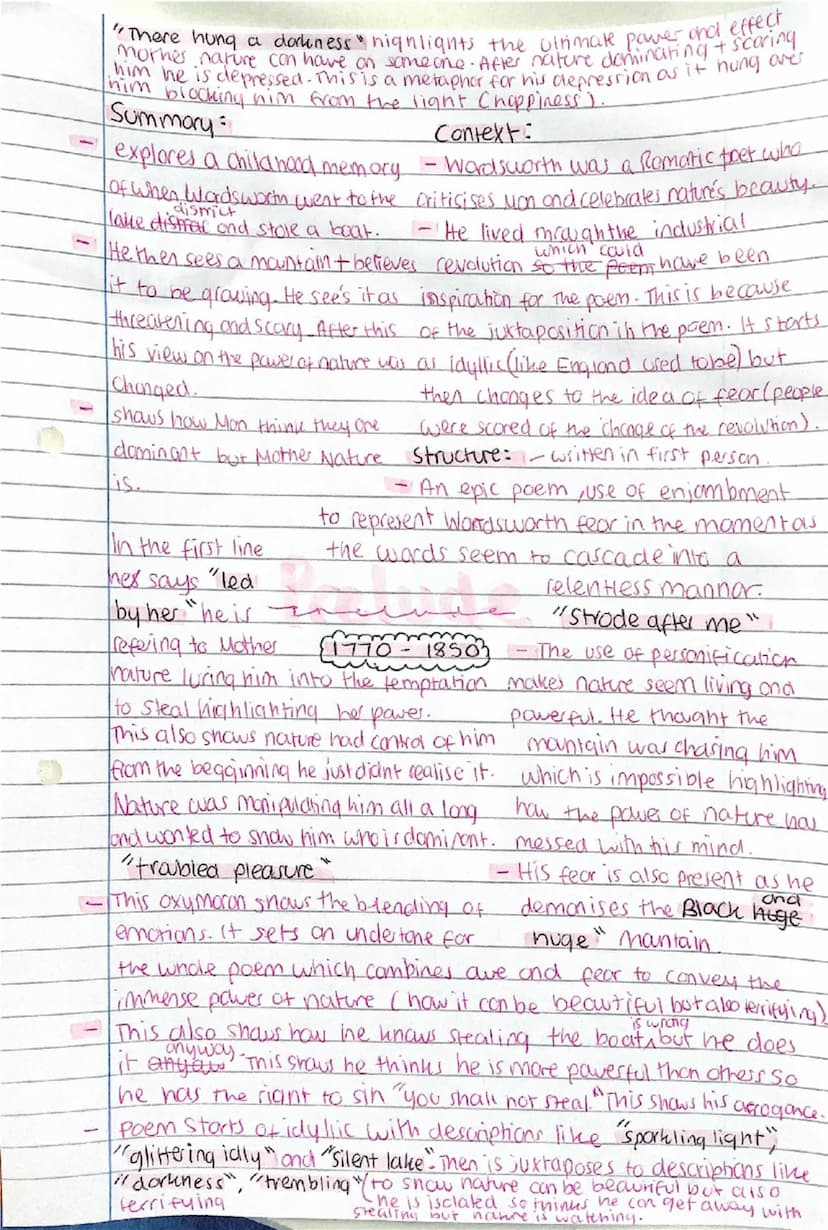 "There hung a darkness" highlights the ultimate power and effect
mother nature can have on someone. After nature dominating + scaring
him he is depressed. This is a metaphor for his depression as it hung over
him blocking him from the light (happiness).
Summary:
- explores a childhood memory
of when Wordsworth went to the
lake distret district and stole a boat.
- He then sees a mountain + believes
it to be growing. He see's it as
threatening and scary. After this
his view on the power of nature was
changed.
- shows how Man think they are
dominant but Mother Nature
is.
Context:
- Wordsworth was a Romatic poet who
criticises Man and celebrates nature's beauty.
- He lived through the industrial
revolution so the poem which could have been
inspiration for the poem. This is because
of the juxtaposition in the poem. It starts
as idyllic (like England used to be) but
then changes to the idea of fear (people
were scared of the change of the revolution).
Structure: - written in first person.
- An epic poem, use of enjambment
to represent Wordsworth fear in the moment as
the words seem to cascade into a
relentless mannor.
Prelude
1770 - 1850
In the first line
he says "led
by her" he is
refering to Mother
nature luring him into the temptation
to steal highlighting her power.
This also shows nature had control of him
from the begginning he just didnt realise it.
Nature was manipulating him all a long
and wanted to show him who is dominant.
"Strode after me"
- The use of personification
makes nature seem living and
powerful. He thought the
mantain was chasing him
which is impossible highlighting
how the power of nature has
messed with his mind.
- His fear is also present as he
demonises the Black huge and
huge" mantain
"troubled pleasure"
- This oxymoron shows the blending of
emotions. It sets an undertone for
the whole poem which combines awe and fear to convey the
immense power of nature (how it can be beautiful but also terrifying)
- This also shows how he knows stealing the boat is wrong but he does
it anyaw anyway. This shows he thinks he is more powerful than others so
he has the right to sin "you shall not steal." This shows his arrogance.
- Poem starts of idyllic with descriptions like "sparkling light",
"glittering idly" and "silent lake". Then is juxtaposes to descriptions like
"darkness", "trembling" (to show nature can be beautiful but also
terrifying
(he is isolated so thinks he can get away with
stealing but nature is watching.